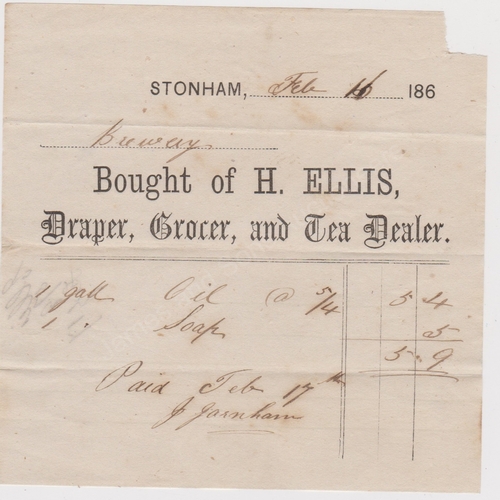 STONHAM, Feb 16 186
Bought of H. ELLIS,
Draper, Grocer, and Tea Dealer.
1 gall Oil @ 5/4 5 4
1 . Soap 5
5 . 9
Paid Feb 17th
J Jarnham